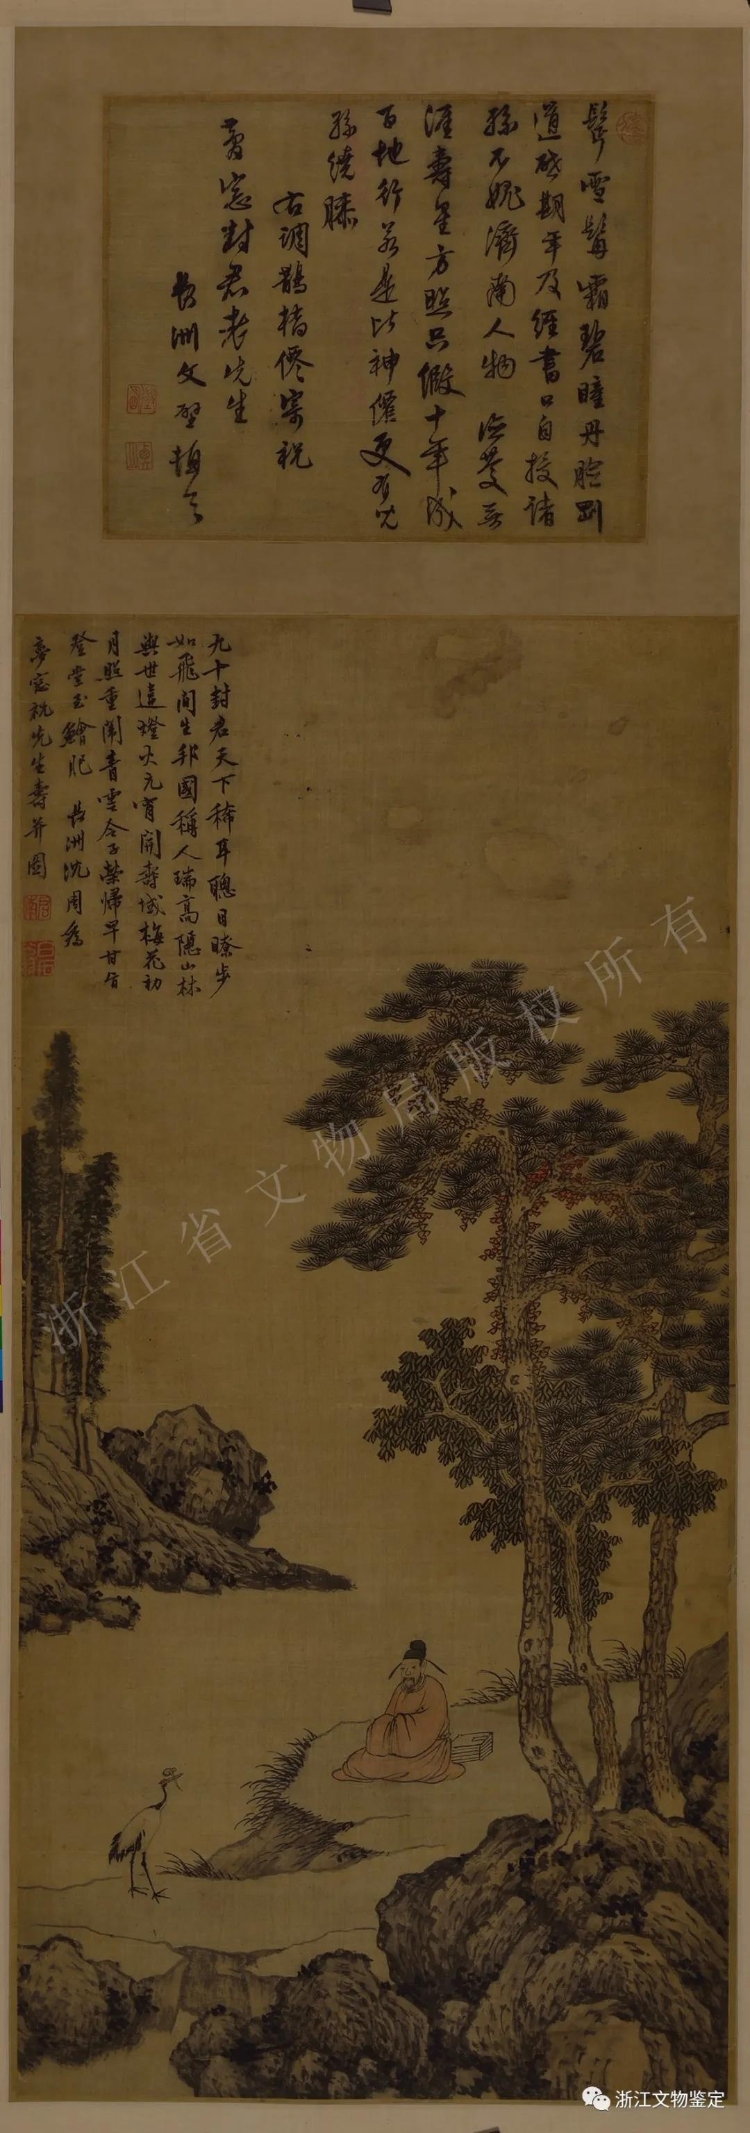 鬓雪髯霜碧瞳丹脸别
道啟期年及經書口自授諸
孫不媿濟南人物 海叟云
涯壽星方照只假十年成
百地行若是比神僊更有兒
孫繞膝
右調鵲橋僊寄祝
夢窓封君老先生
長洲文壁頓首
九十封君天下稀耳聰目瞭步
如飛間生邦國稱人瑞高隱山林
與世違燈火元宵開壽域梅花初
月照重闈青雲令子榮歸早甘旨
登堂玉鱠肥 長洲沈周為
夢窓祝先生壽并圖
浙江省文物局版权所有
浙江文物鉴定